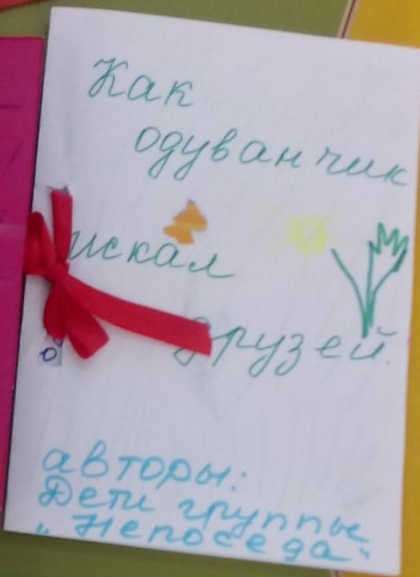 Как
одуванчик
искал
друзей.
авторы:
Дети группы
"Непоседа"